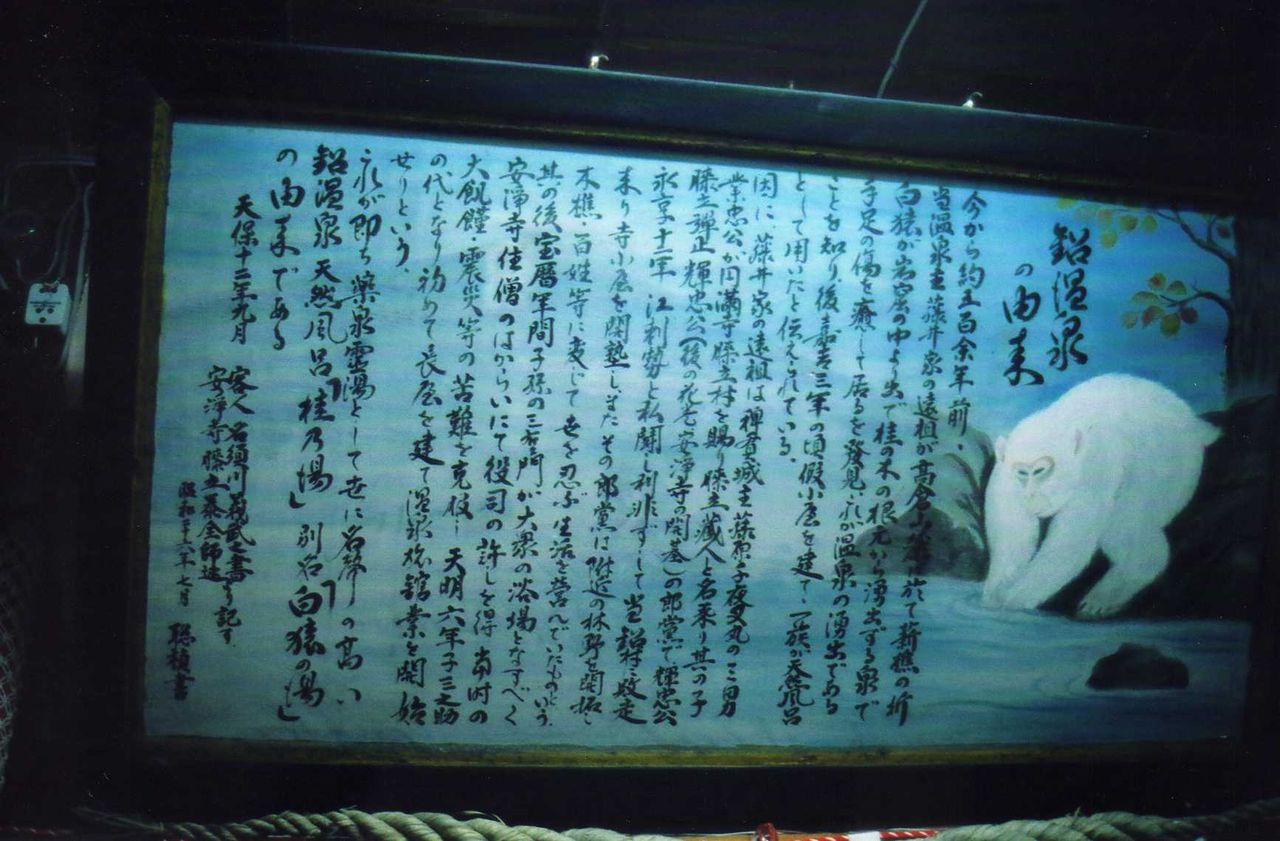 鉛温泉
の由来
今から約五百余年前、
当温泉主藤井家の遠祖が高倉山麓に於て薪樵の折
白猿が岩窟の中より出で桂の木の根元から湧出ずる泉で
手足の傷を癒して居るを發見、之が温泉の湧出である
ことを知り後嘉吉三年の頃假小屋を建て、一族が天然風呂
として用いたと伝えられている。
因に、藤井家の遠祖は
業忠公が円満寺膝立村を賜り膝立藏人と名乗り其の子
膝立彈正輝忠公(後の花巻安浄寺の開基)の郎黨で輝忠公
永享十二年 江刺勢と私闘し利非ずして当鉛村に敗走
来り寺小屋を開塾しまたその郎黨は附近の林野を開拓し
木樵・百姓等に変じて世を忍ぶ生活を営んでいたものという。
其の後宝暦年間子孫の三右エ門が大衆の浴場となすべく
安浄寺住僧のはからいにて役司の許しを得 当時の
大飢饉・震災等の苦難を克服し 天明六年子三之助
の代となり初めて長屋を建て温泉旅舘業を開始
せりという。
之が即ち薬泉霊湯として世に名声の高い
鉛温泉 天然風呂「桂乃湯」別名「白猿の湯」
の由来である
天保十二年九月
客人 名須川義武之書より記す
安浄寺膝立泰全師述
昭和三十六年七月 聯禎書